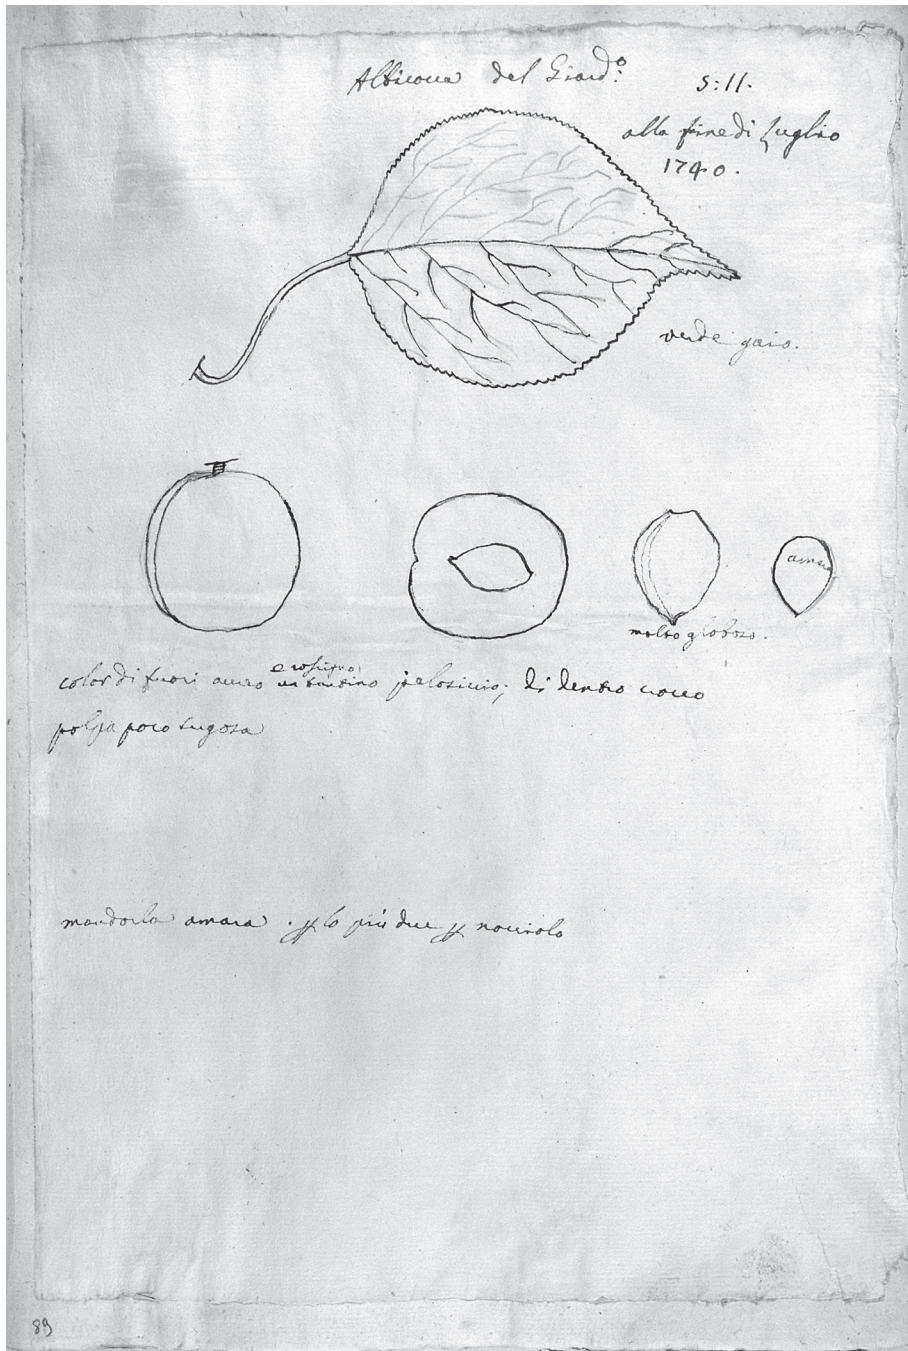 Albicocca del Giard:o
S: 11.
alla fine di Luglio
1740.
verde gaio.
amara
molto globoso.
e rossigno
color di fuori aureo un tantino pelosiccio; di dentro croceo
polpa poco sugosa
mandorla amara. p lo più due p nocciolo
89